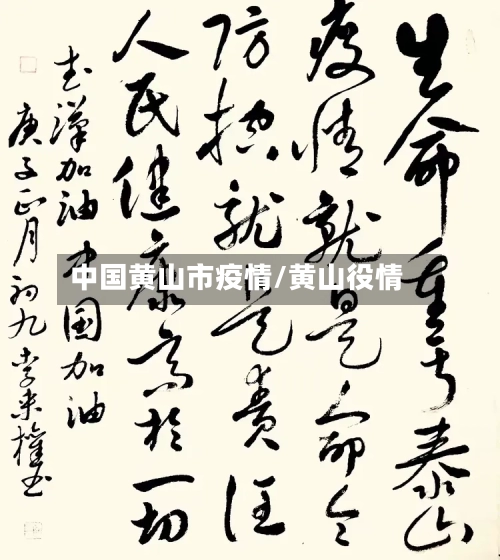 生命重于泰山
疫情就是命令
防控就是责任
人民健康高于一切
武汉加油中国加油
庚子正月初九李来權书
中国黄山市疫情/黄山役情